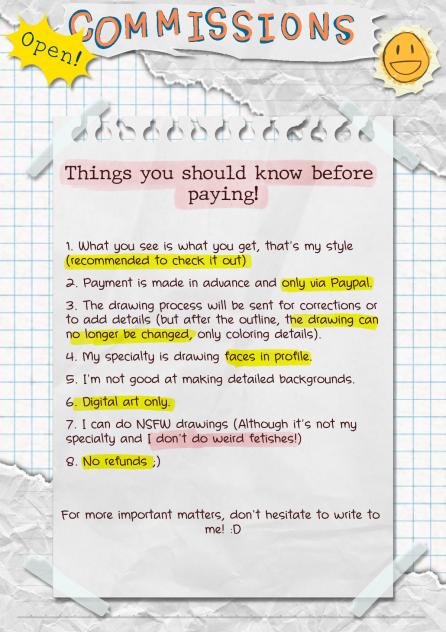 COMMISSIONS
Open!
Things you should know before
paying!
1. What you see is what you get, that's my style
(recommended to check it out)
2. Payment is made in advance and only via Paypal.
3. The drawing process will be sent for corrections or
to add details (but after the outline, the drawing can
no longer be changed, only coloring details).
4. My specialty is drawing faces in profile.
5. I'm not good at making detailed backgrounds.
6. Digital art only.
7. I can do NSFW drawings (Although it's not my
specialty and I don't do weird fetishes!)
8. No refunds ;)
For more important matters, don't hesitate to write to
me! :D